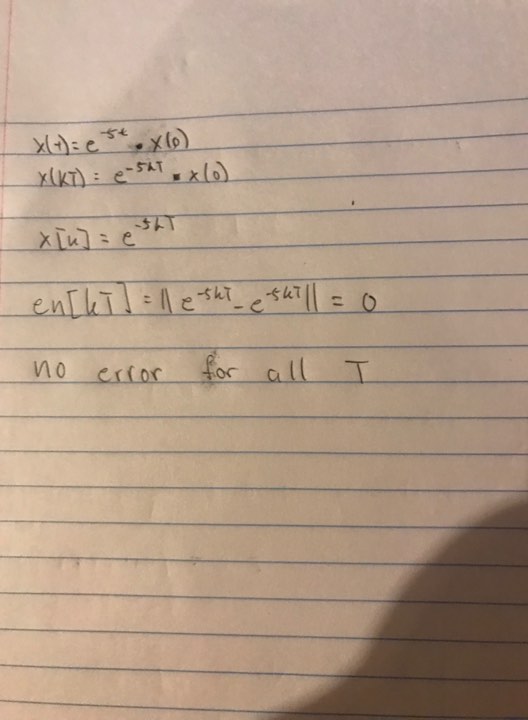 x(t) = e^-5t • x(0)
x(kT) = e^-5kT • x(0)
x[k] = e^-5kT
en[kT] = || e^-5kT - e^-5kT || = 0
no error for all T